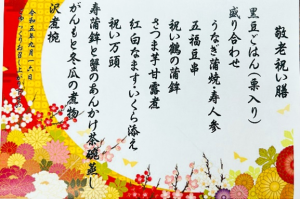 敬老祝い膳
黒豆ごはん(栗入り)
盛り合わせ
うなぎ蒲焼・寿人参
五福豆串
祝い鶴の蒲鉾
さつま芋甘露煮
紅白なます・いくら添え
祝い万頭
寿蒲鉾と蟹のあんかけ茶碗蒸し
がんもと冬瓜の煮物
沢煮椀
令和五年九月一六日